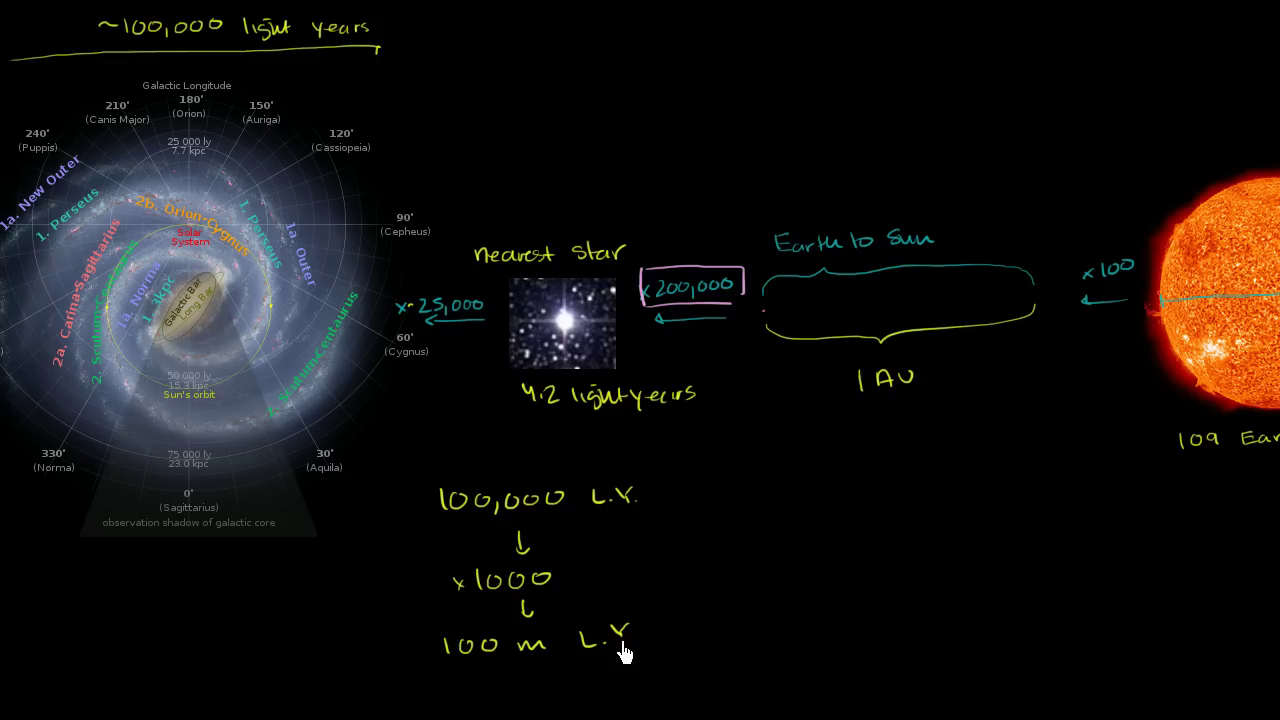 ~100,000 light years
Galactic Longitude
180°
(Orion)
210°
(Canis Major)
150°
(Auriga)
240°
(Puppis)
120°
(Cassiopeia)
25 000 ly
7.7 kpc
1a. New Outer
1. Perseus
2b. Orion-Cygnus
1. Perseus
1a. Outer
90°
(Cepheus)
Solar
System
2a. Carina-Sagittarius
1a. Norma
1. 3kpc
Galactic Bar
Long Bar
1. Scutum-Centaurus
60°
(Cygnus)
50 000 ly
15.3 kpc
Sun's orbit
75 000 ly
23.0 kpc
330°
(Norma)
30°
(Aquila)
0°
(Sagittarius)
observation shadow of galactic core
nearest star
x~25,000
4.2 light years
x200,000
Earth to Sun
1 AU
x100
109 Ear
100,000 L.Y.
↓
x1000
↓
100 m L.Y